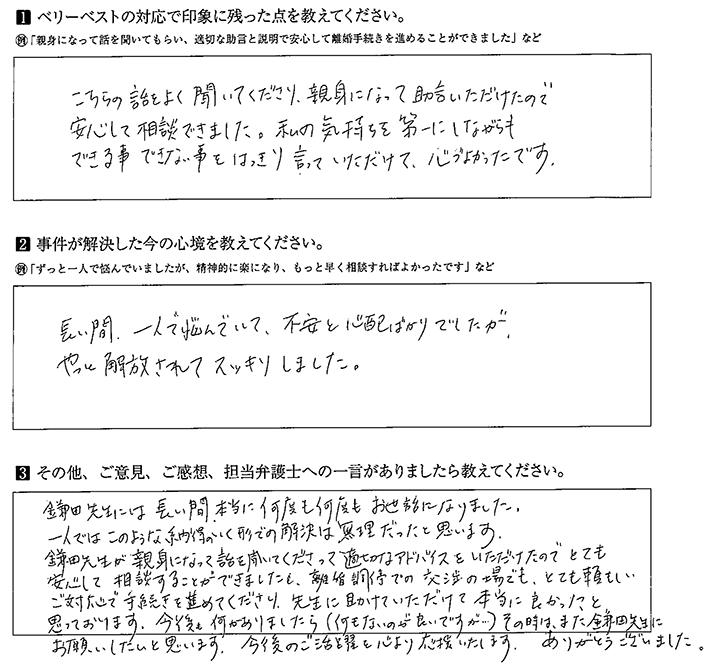 1 ベリーベストの対応で印象に残った点を教えてください。
例「親身になって話を聞いてもらい、適切な助言と説明で安心して離婚手続きを進めることができました」など
こちらの話をよく聞いてくださり、親身になって助言いただけたので
安心して相談できました。私の気持ちを第一にしながらも
できる事できない事をはっきり言っていただけて、心づよかったです。
2 事件が解決した今の心境を教えてください。
例「ずっと一人で悩んでいましたが、精神的に楽になり、もっと早く相談すればよかったです」など
長い間、一人で悩んでいて、不安と心配ばかりでしたが、
やっと解放されてスッキリしました。
3 その他、ご意見、ご感想、担当弁護士への一言がありましたら教えてください。
鎌田先生には長い間、本当に何度も何度もお世話になりました。
一人ではこのような納得のいく形での解決は無理だったと思います。
鎌田先生が親身になって話を聞いてくださって適切なアドバイスをいただけたのでとても
安心して相談することができましたし、離婚調停での交渉の場でも、とても頼もしい
ご対応で手続きを進めてくださり、先生に助けていただけて本当に良かったと
思っております。今後も何かありましたら(何もないのが良いですが…)その時は、また鎌田先生に
お願いしたいと思います。今後のご活躍を心より応援いたします。ありがとうございました。